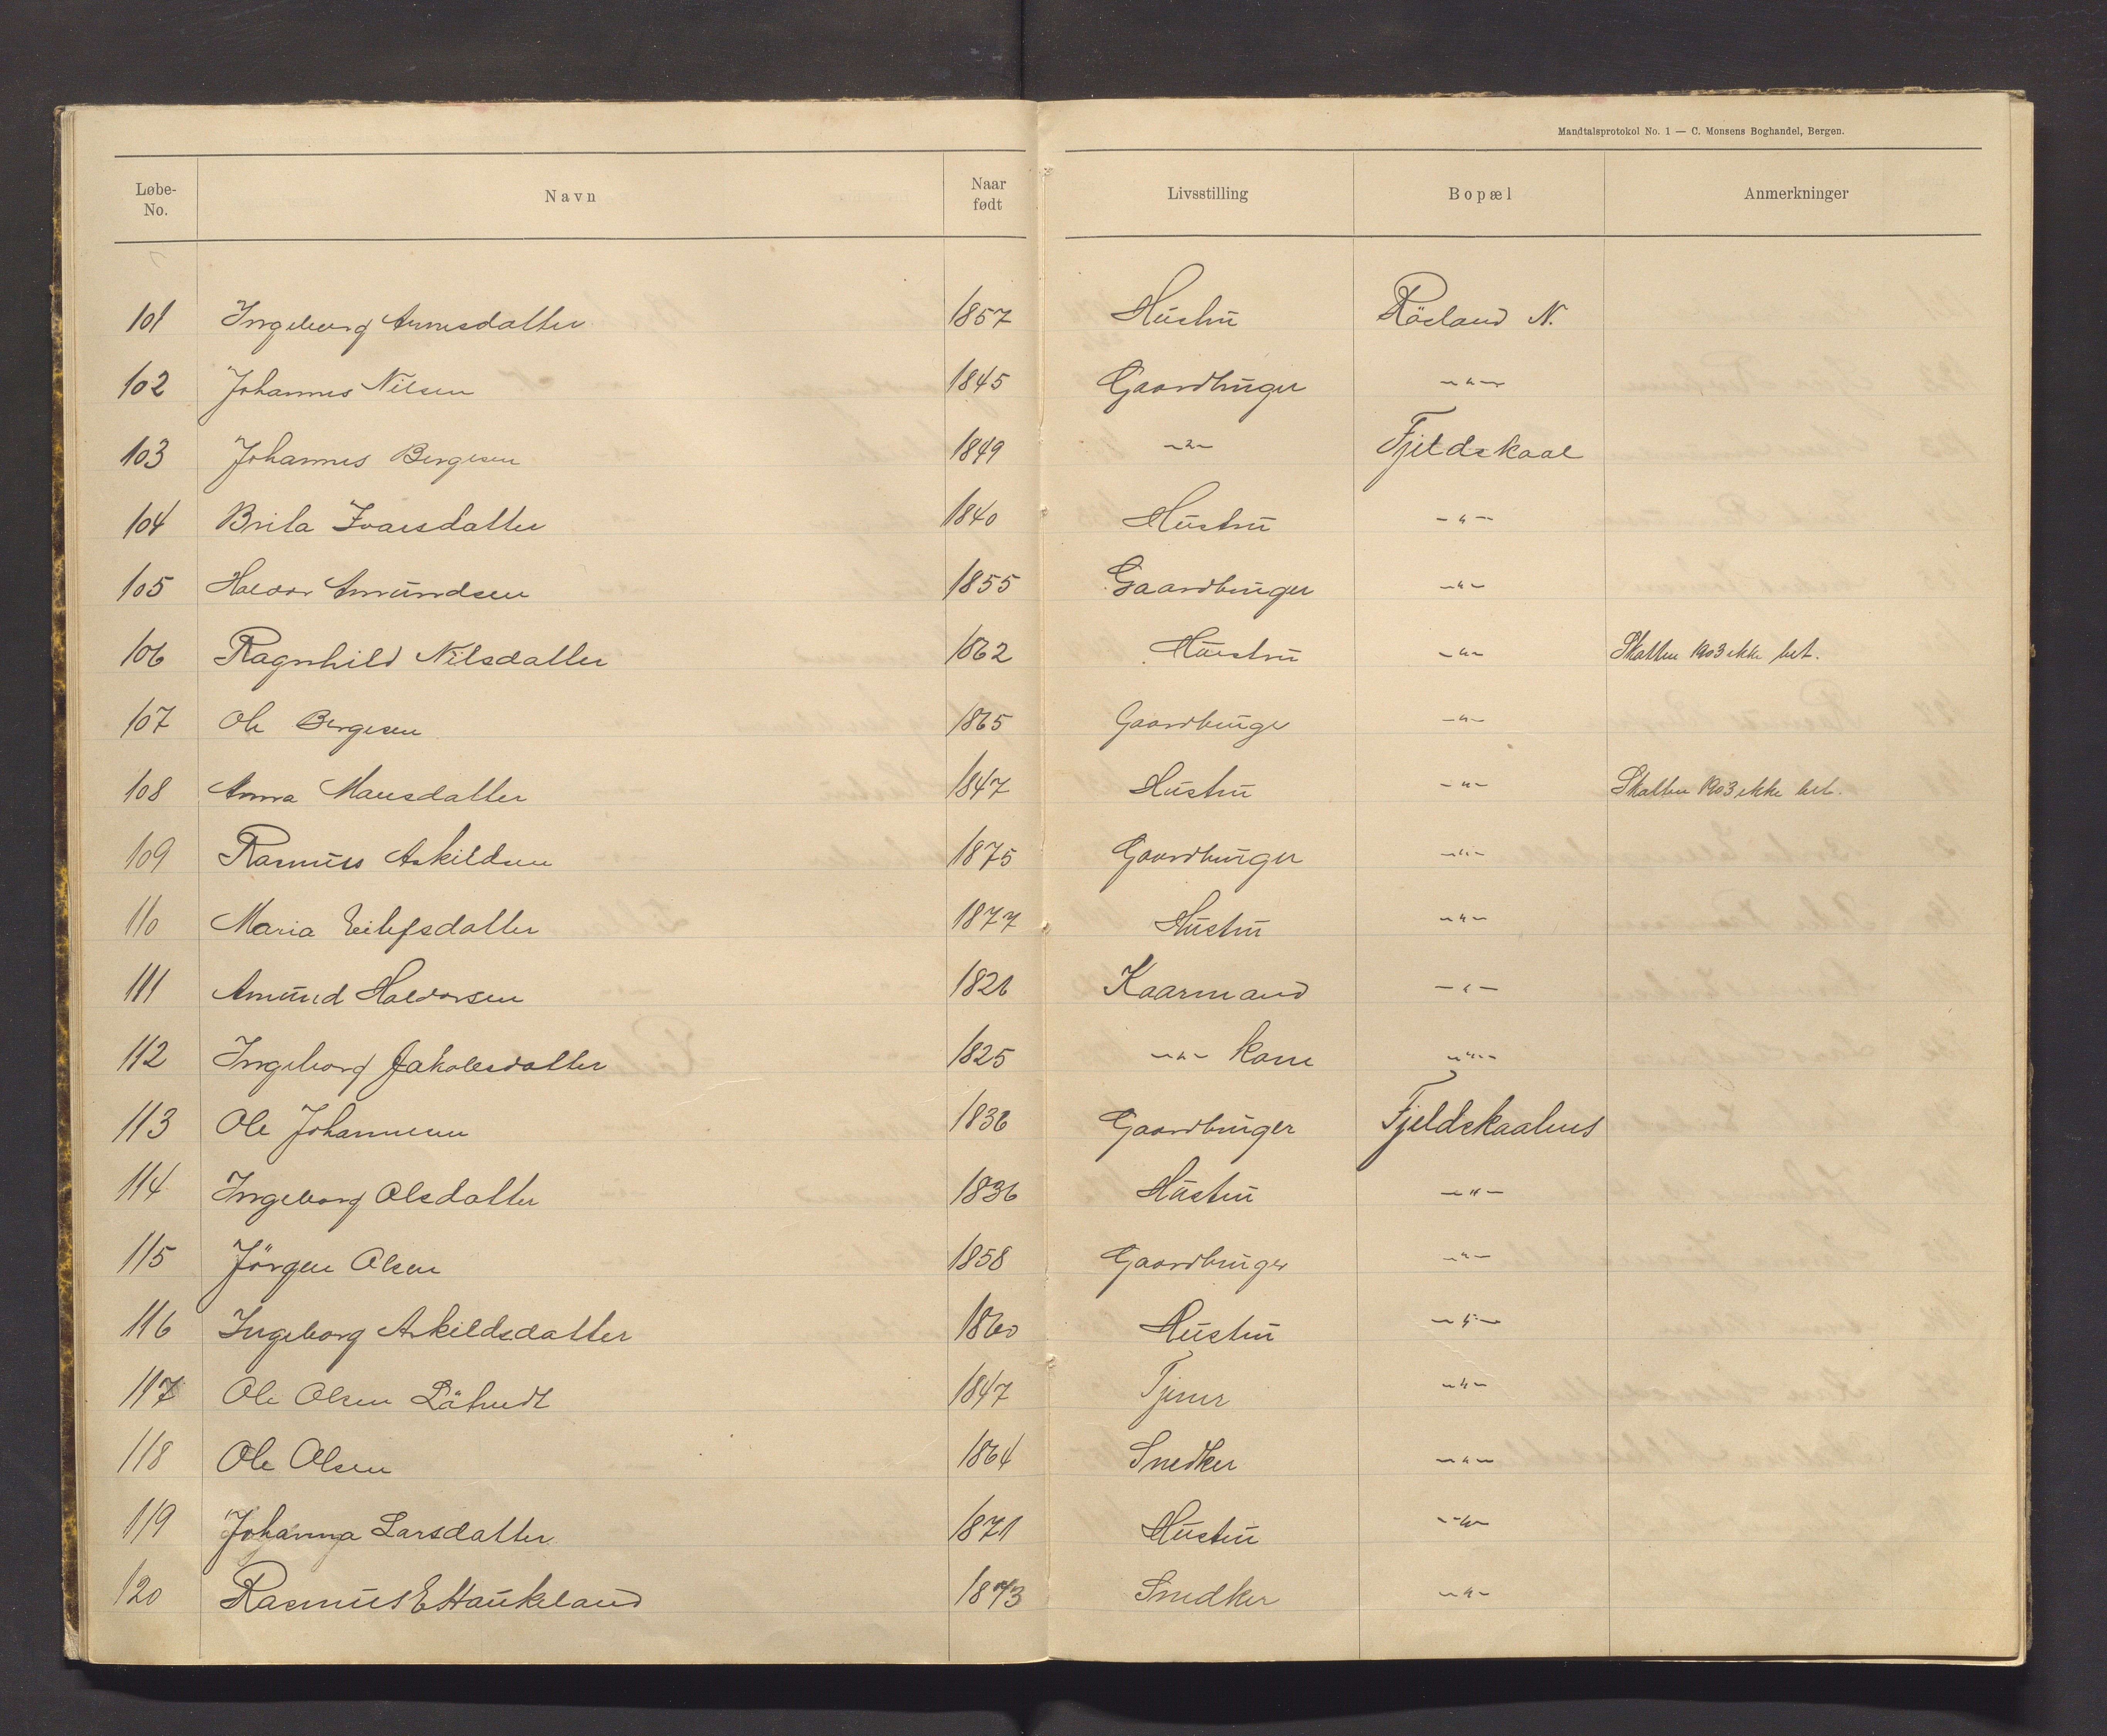 Mandtalsprotokol No. 1 — C. Monsens Boghandel, Bergen.
Løbe-No. Navn Naar født Livsstilling Bopæl Anmerkninger
101 Ingeborg Arnesdatter 1857 Hustru Röeland N.
102 Johannes Nilsen 1845 Gaardbruger -"-
103 Johannes Bergesen 1849 -"- Fjeldskaal
104 Brita Ivarsdatter 1840 Hustru -"-
105 Haldor Amundsen 1855 Gaardbruger -"-
106 Ragnhild Nilsdatter 1862 Hustru -"- Skatten 1903 ikke bet.
107 Ole Bergesen 1865 Gaardbruge -"-
108 Anna Mansdatter 1847 Hustru -"- Skatten 1903 ikke bet.
109 Rasmus Askildsen 1875 Gaardbruger -"-
110 Maria Eilefsdatter 1877 Hustru -"-
111 Amund Haldorsen 1826 Kaarmand -"-
112 Ingeborg Jakobsdatter 1825 -"- kone -"-
113 Ole Johannesen 1836 Gaardbruger Fjeldskaalnes
114 Ingeborg Olsdatter 1836 Hustru -"-
115 Jörgen Olsen 1858 Gaardbruger -"-
116 Ingeborg Askildsdatter 1860 Hustru -"-
117 Ole Olsen 1847 Tjener -"-
118 Ole Olsen 1864 Snedker -"-
119 Johanna Larsdatter 1871 Hustru -"-
120 Rasmus E Haukeland 1873 Snedker -"-